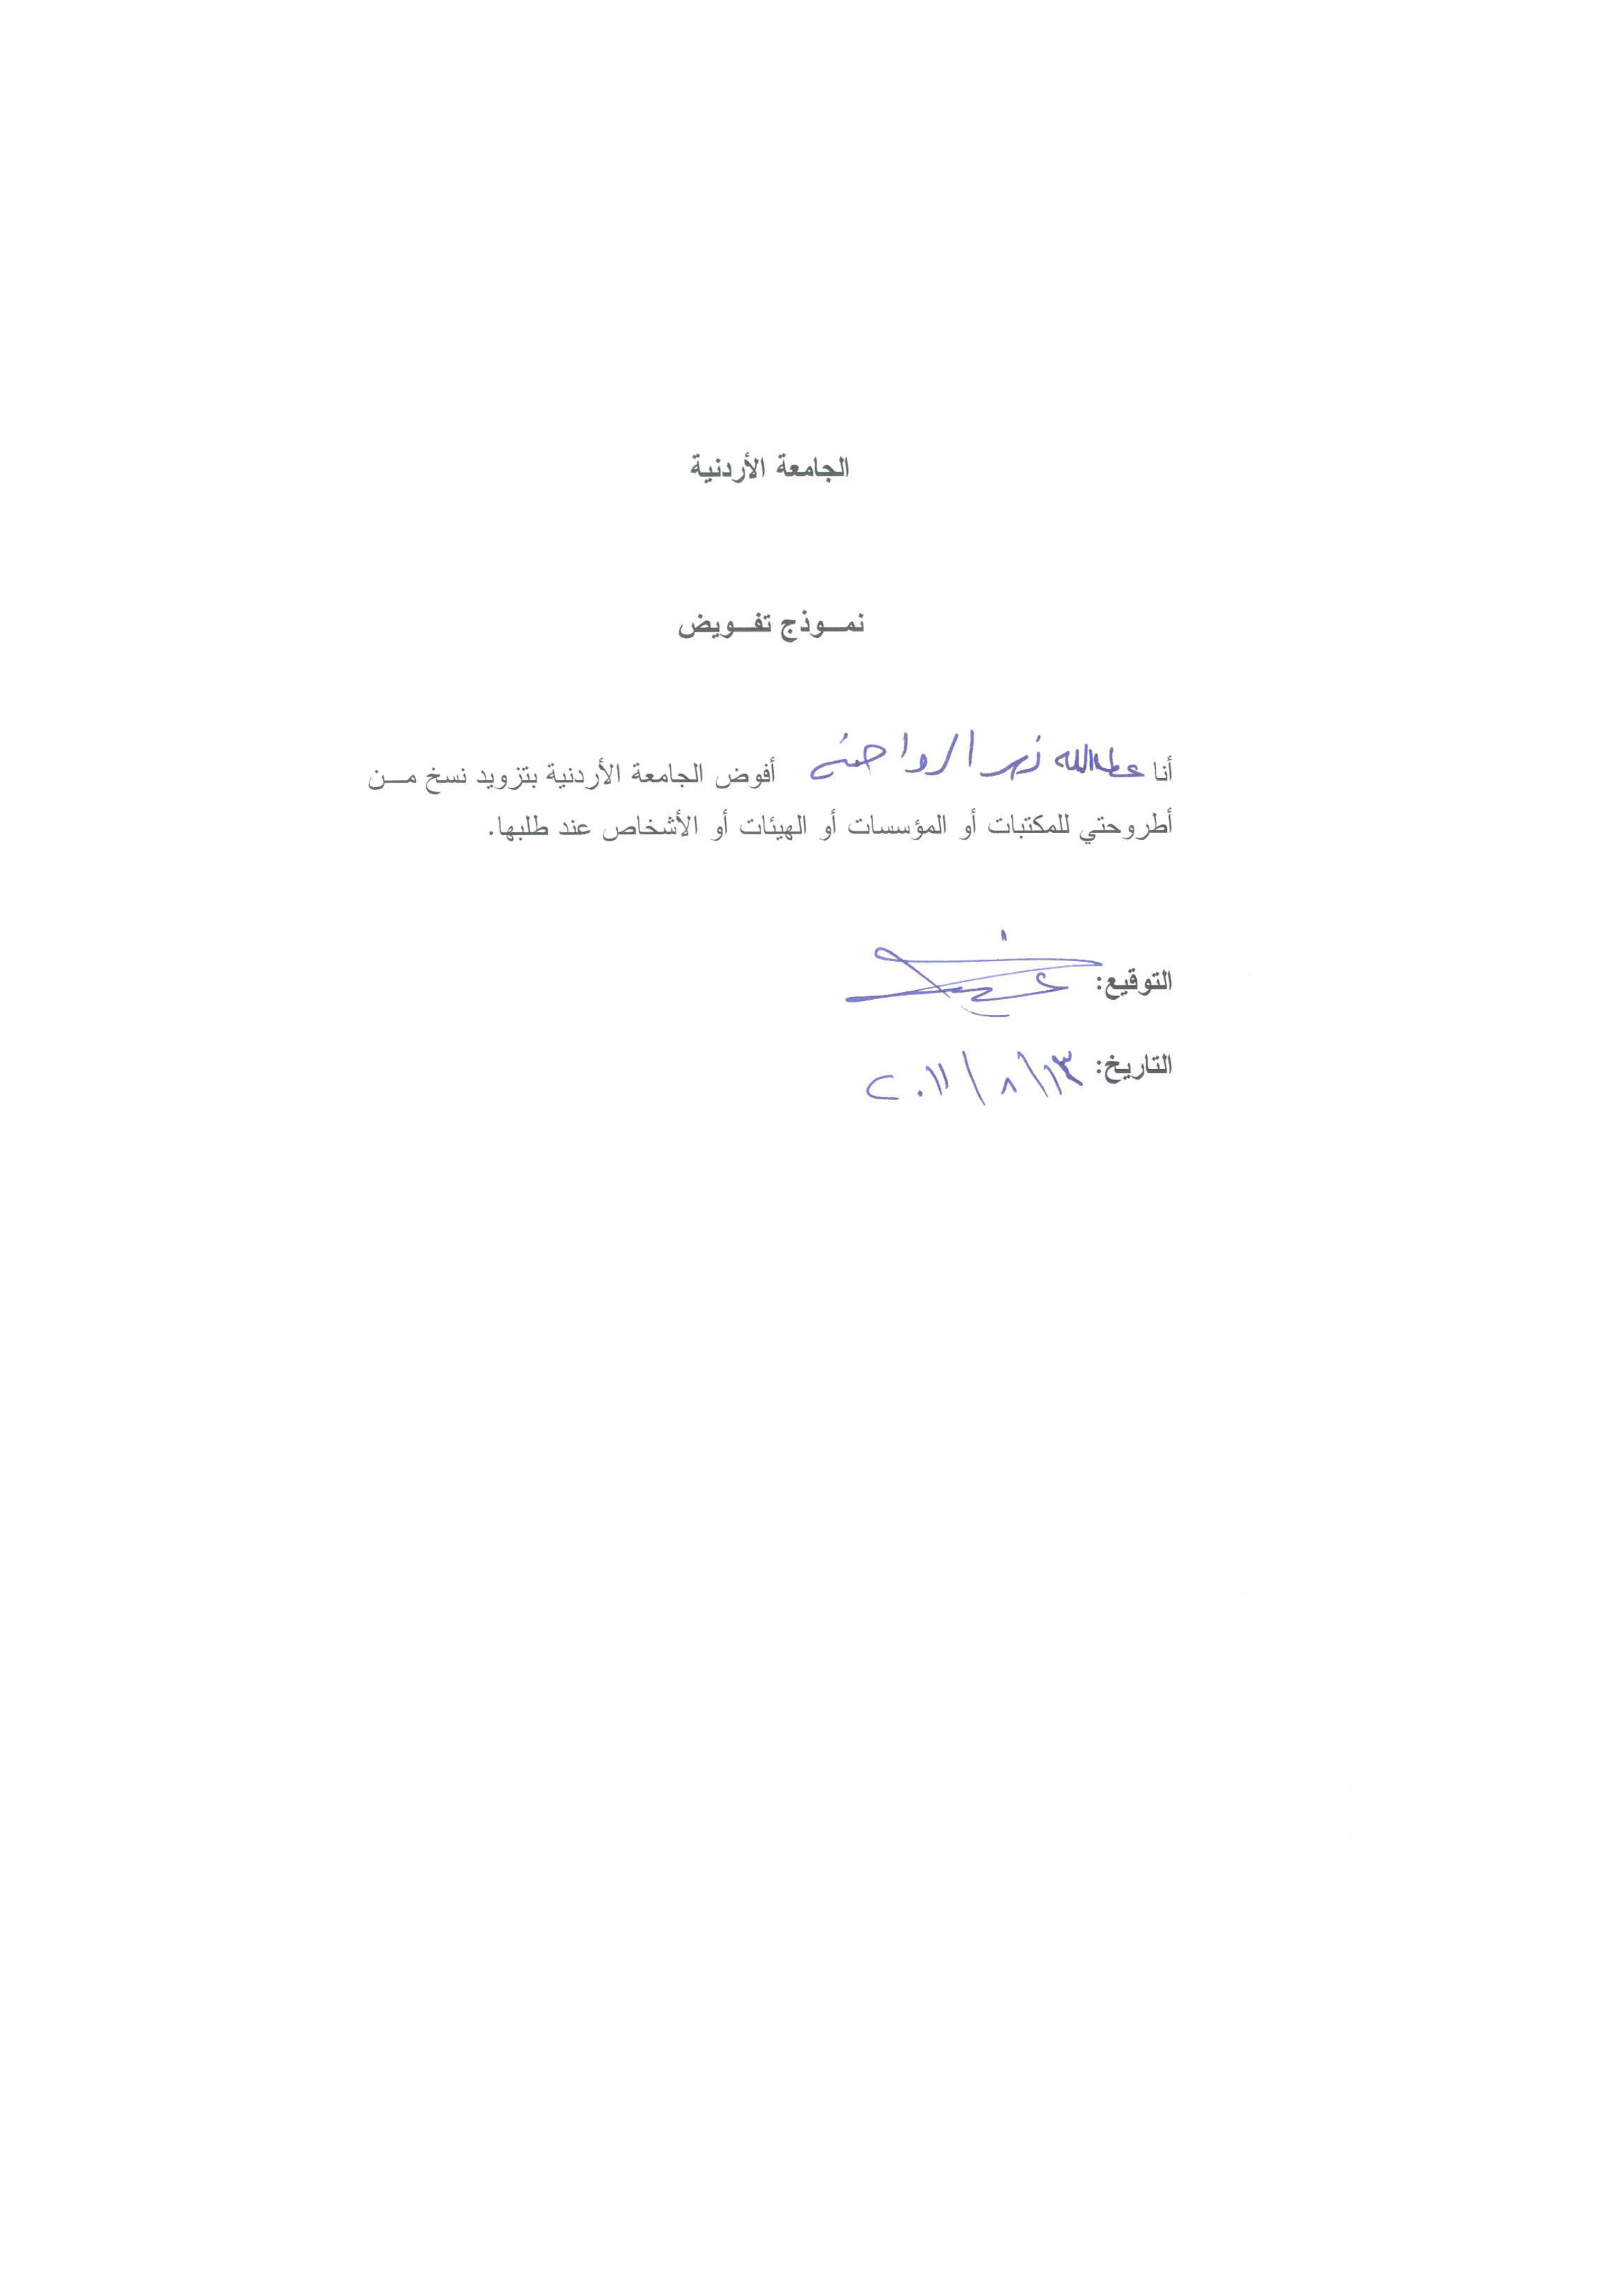 الجامعة الأردنية
نمـــوذج تفـــويض
أنا عطاالله أفوض الجامعة الأردنية بتزويد نسخ مـــن
أطروحتي للمكتبات أو المؤسسات أو الهيئات أو الأشخاص عند طلبها.
التوقيع:
التاريخ: ١٣/٨/٢٠١١